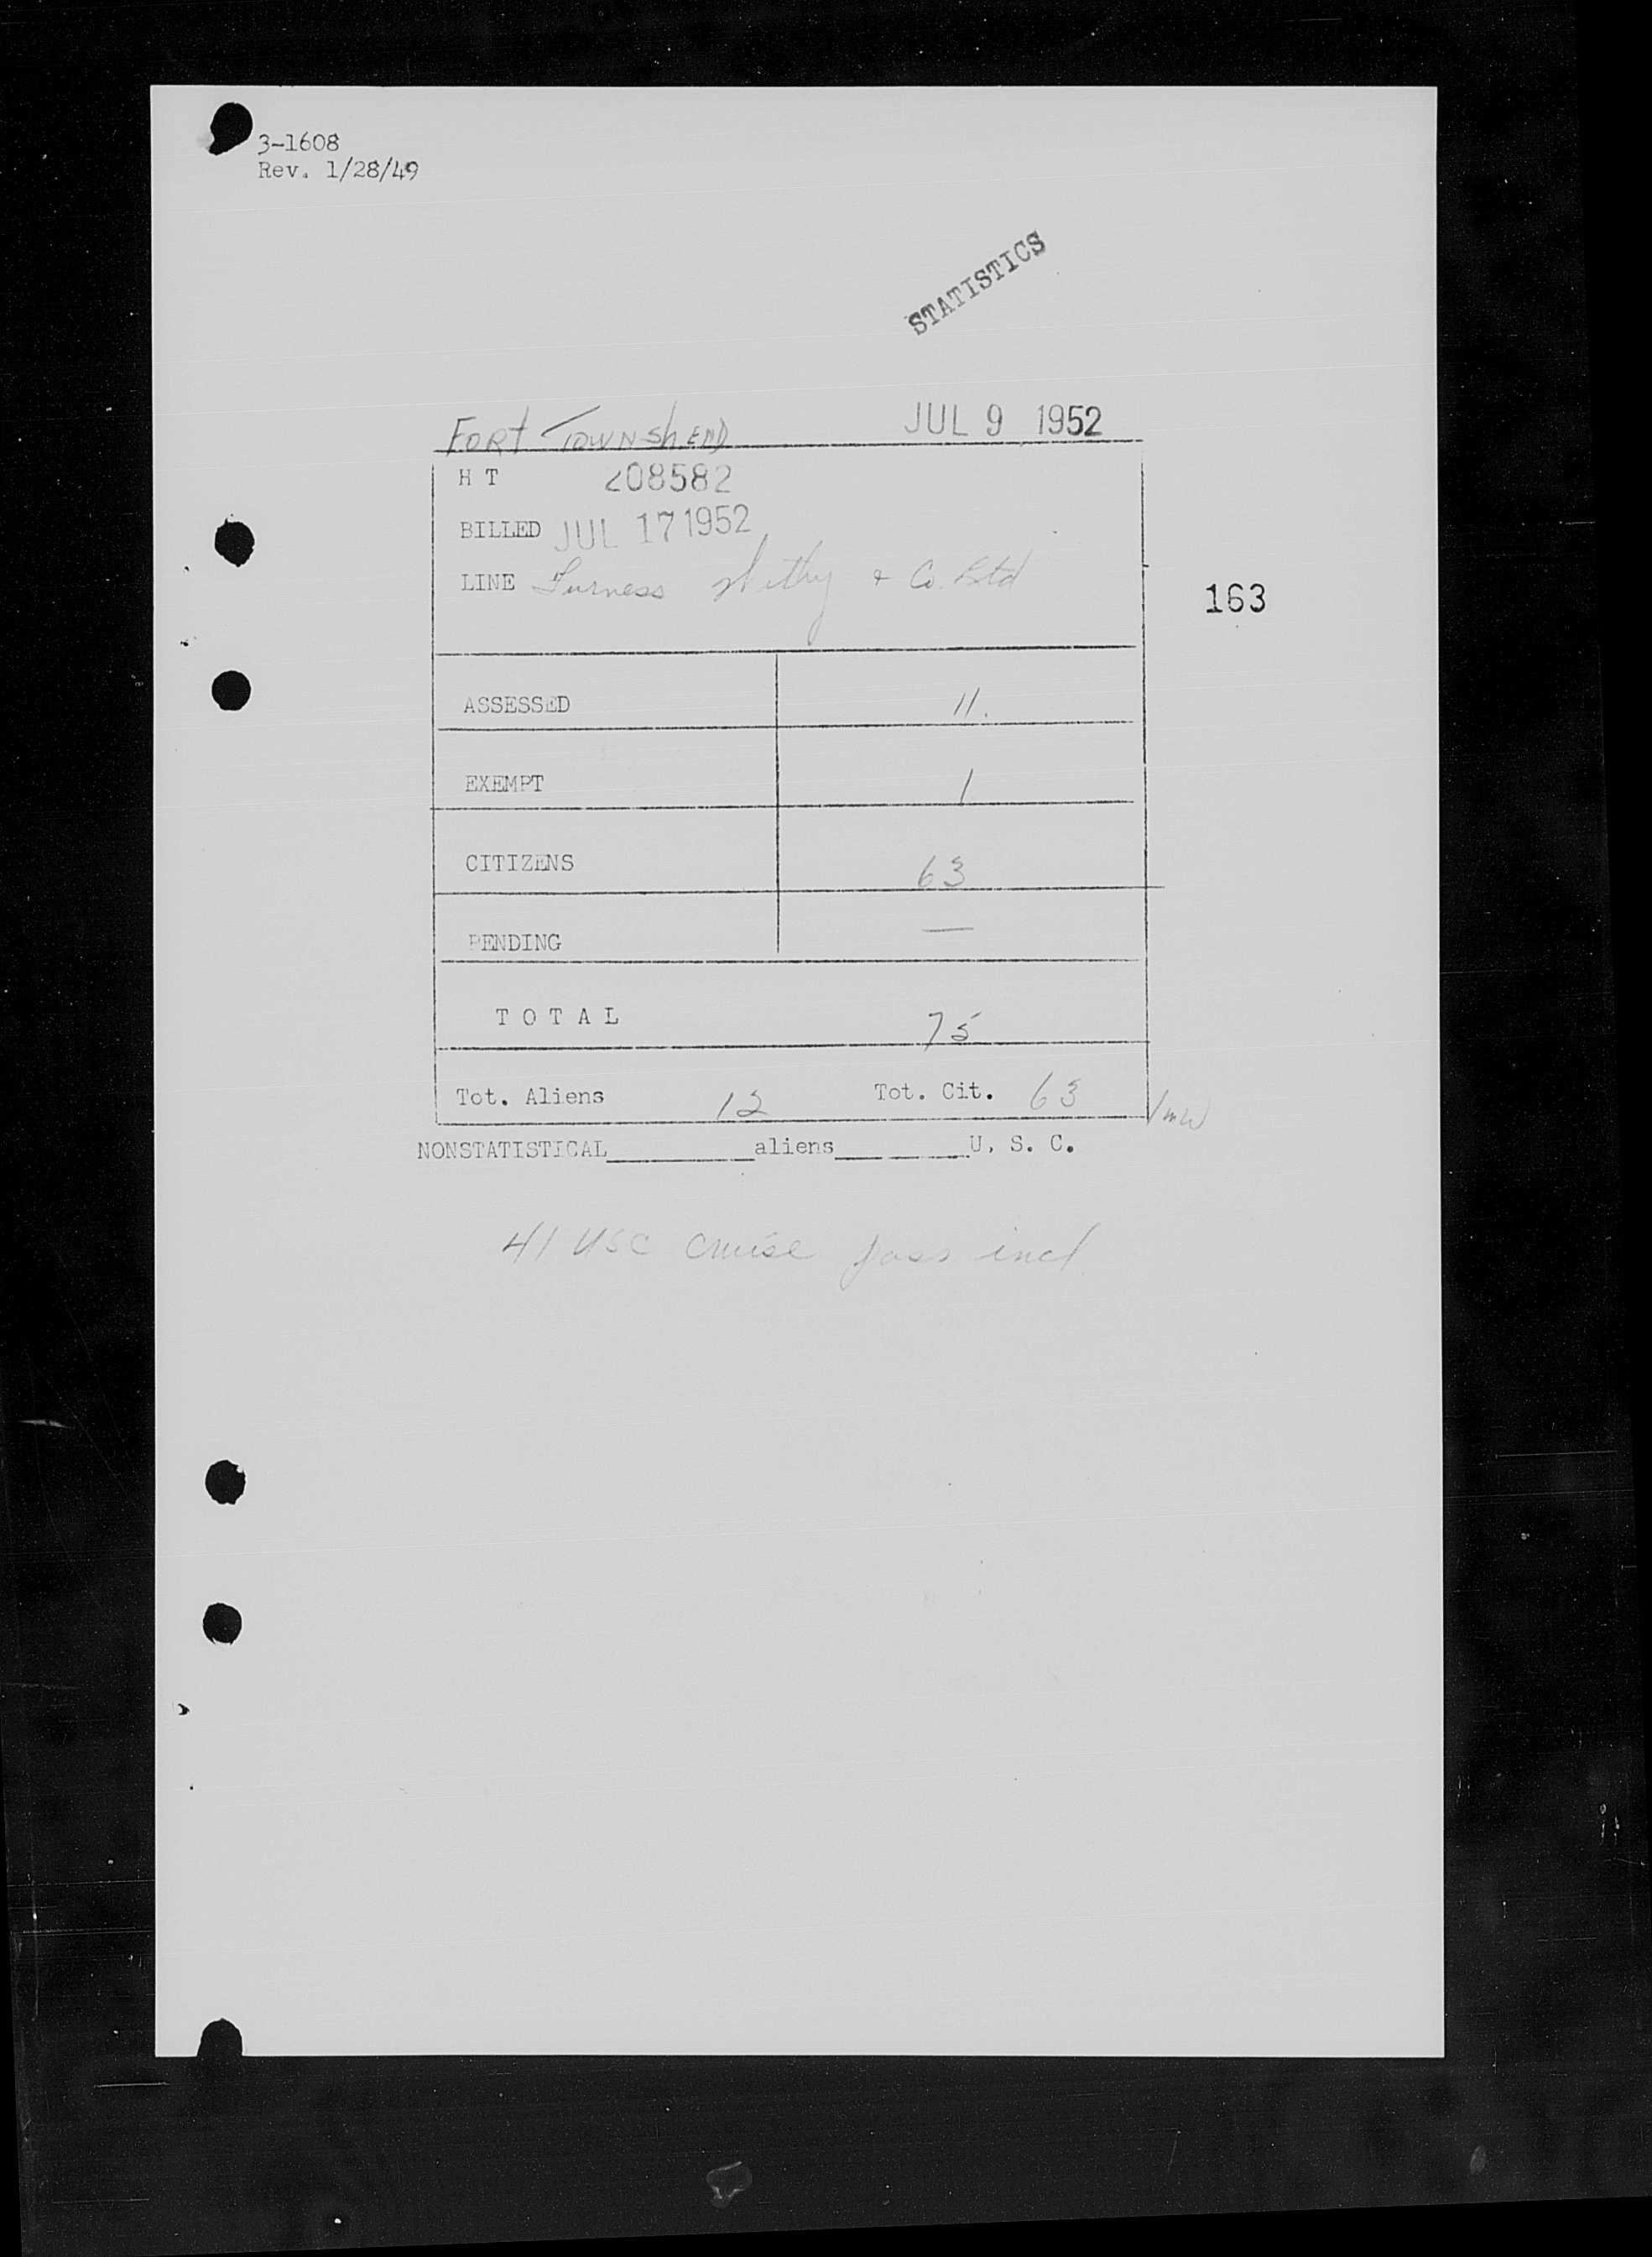 3-1608
Rev. 1/28/49
STATISTICS
FORT TOWNSHEND JUL 9 1952
H T 208582
BILLED JUL 17 1952
LINE Furness Withy & Co. Ltd
163
ASSESSED 11.
EXEMPT 1
CITIZENS 63
PENDING —
TOTAL 75
Tot. Aliens 12 Tot. Cit. 63
NONSTATISTICAL__________aliens__________U. S. C.
41 USC cruise pass incl